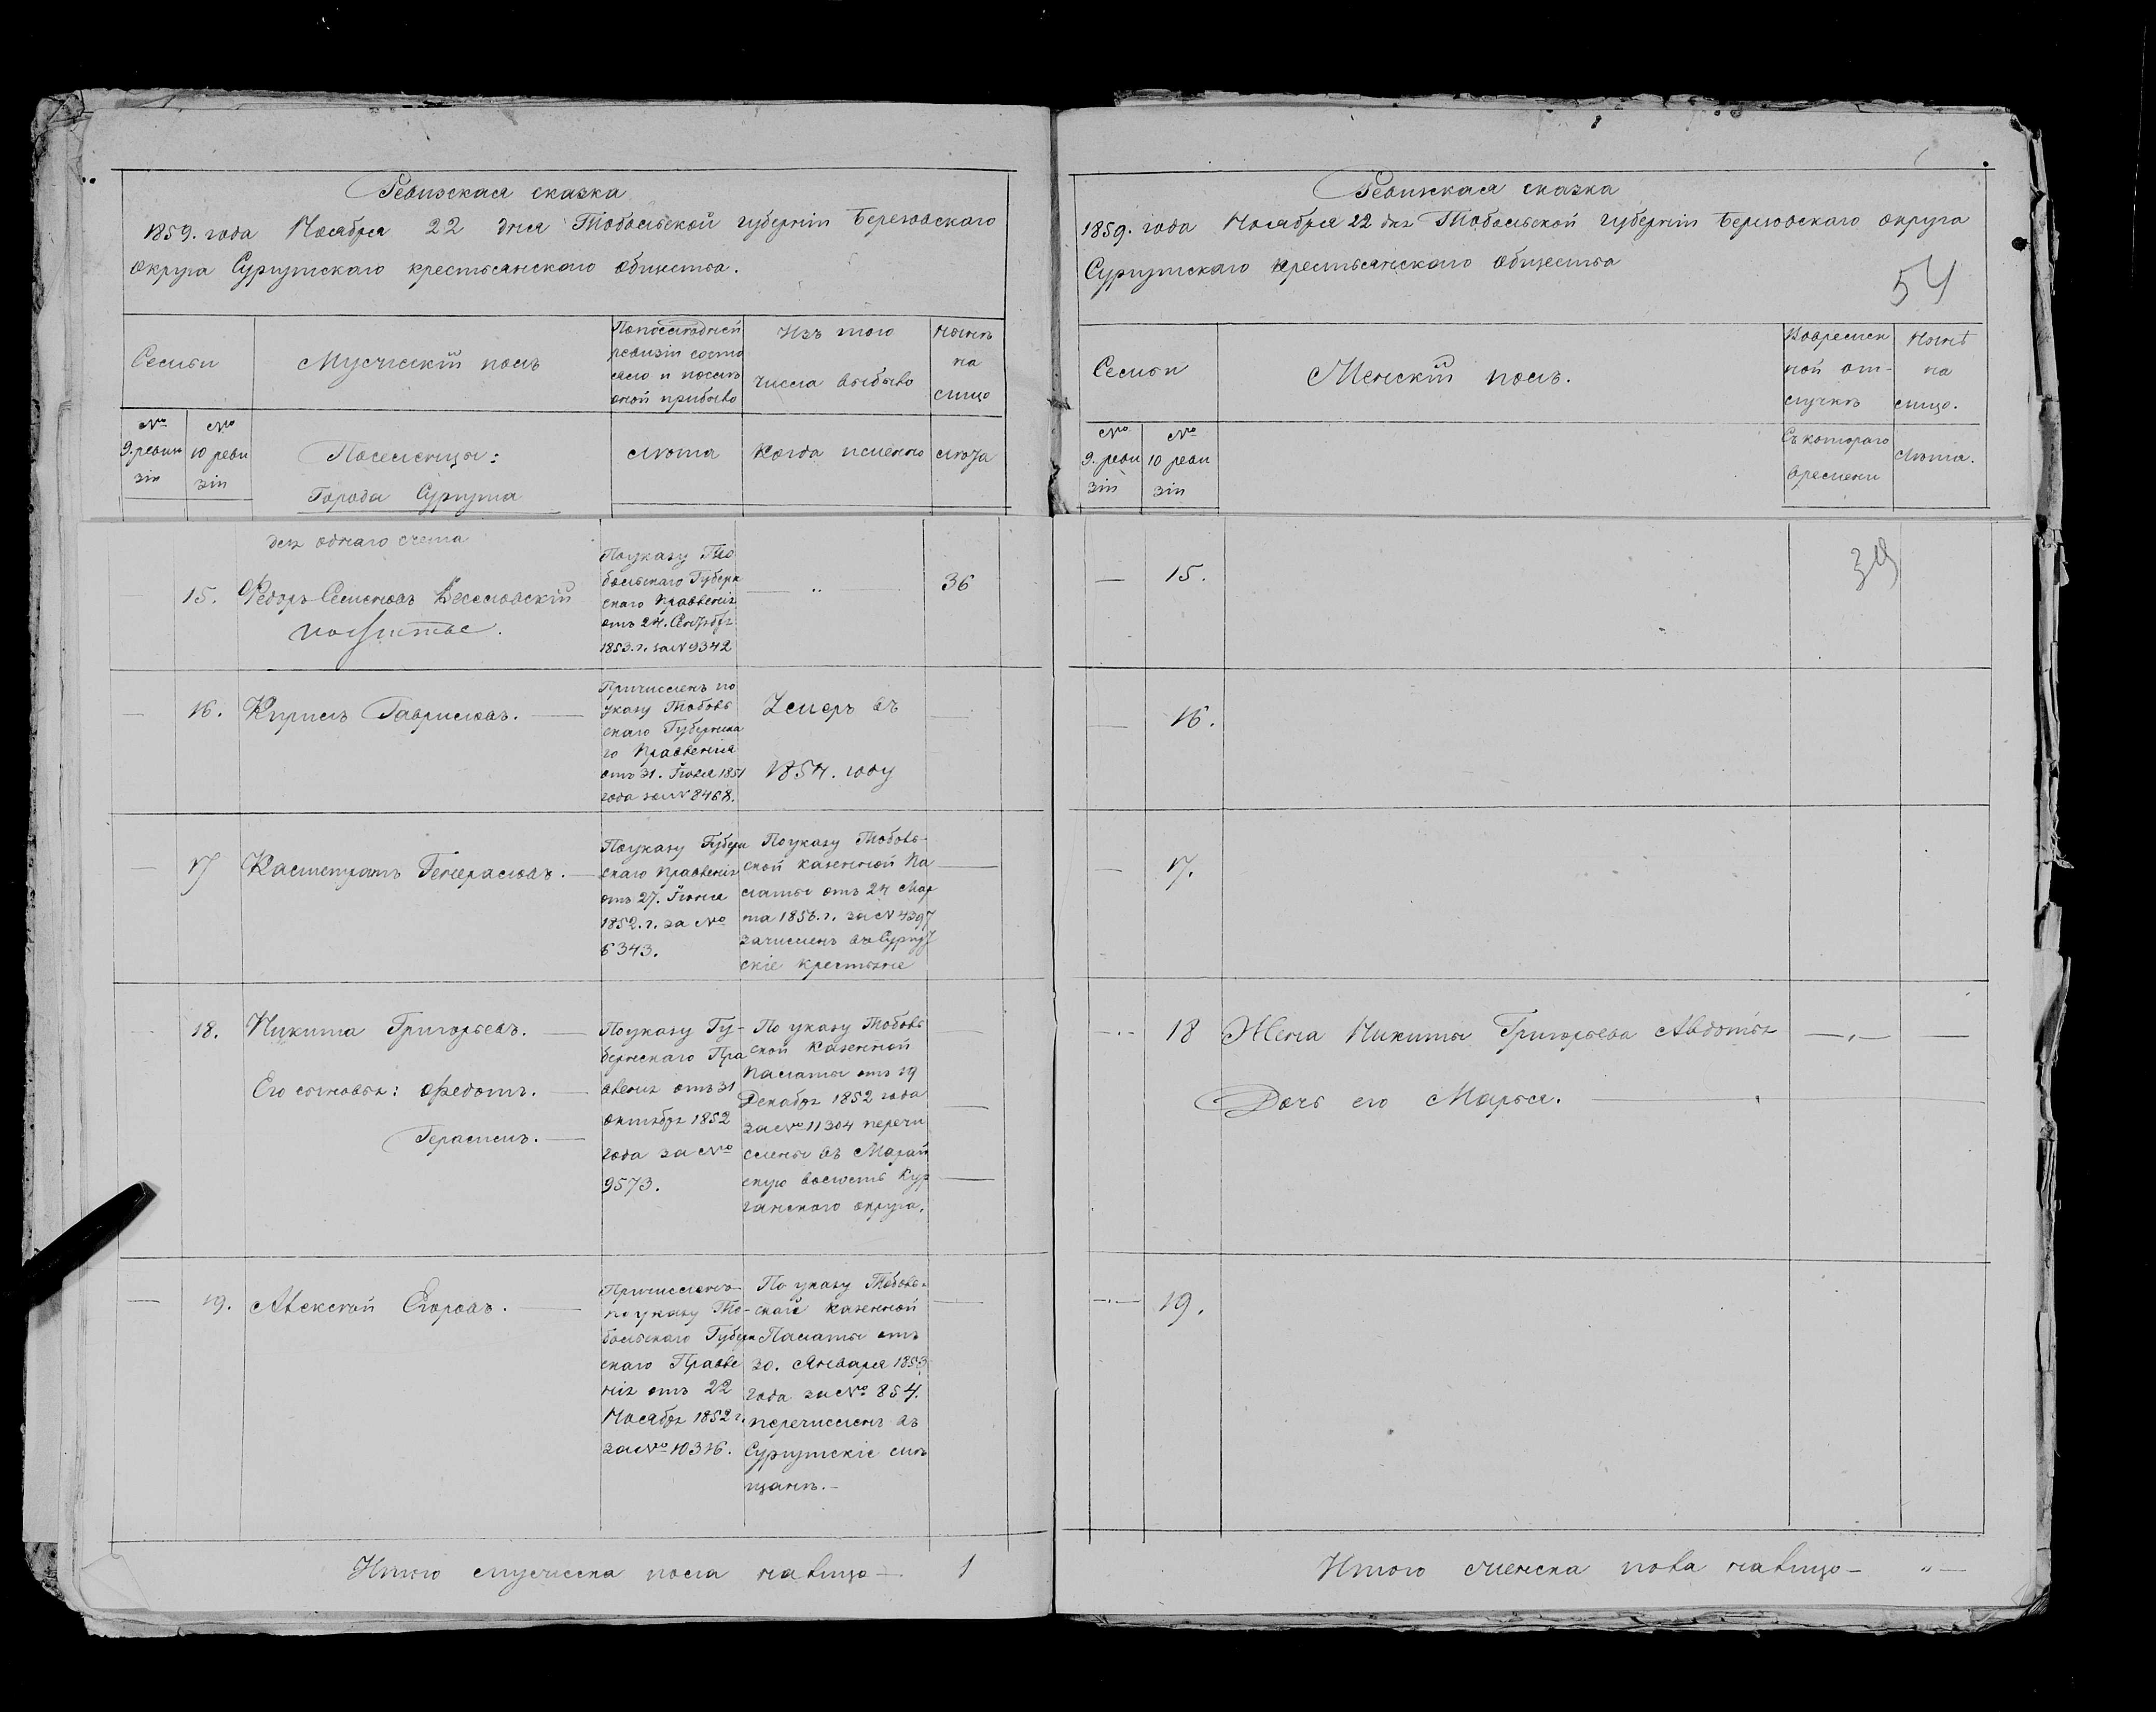 Ревизская сказка
1859. года Ноября 22 дня Тобольской губерніи Березовскаго
округа Сургутскаго крестьянскаго общества.
Семьи
Мужескій полъ
По последней
ревизіи состо
яло и после
оной прибыло
Изъ того
числа выбыло
Ныне
на
лицо
№
9. реви
зіи
№
10 реви
зіи
Поселенцы:
Города Сургута
лета
Когда именно
лета
для однаго счета
15. Федоръ Семеновъ Веселовскій
По указу То
больскаго Губерн
скаго Правленія
отъ 24. Сентября
1853. г. за № 9342
36
16. Кирилъ Гавриловъ.
Причисленъ по
указу Тоболь
скаго Губернска
го Правленія
отъ 31. Іюля 1851
года за № 8468.
Умеръ въ
1854. году
17 Калистратъ Генераловъ.
По указу Губерн
скаго Правленія
отъ 27. Іюня
1852. г. за №
6343.
По указу Тоболь-
ской казенной Па
латы отъ 24 Мар
та 1856. г. за № 4397
зачисленъ въ Сургут
скіе крестьяне
18. Никита Григорьевъ.
Его сыновья: Федотъ.
Герасимъ.
По указу Гу-
бернскаго Пра
вленія отъ 31
октября 1852
года за №
9573.
По указу Тоболь
ской казенной
Палаты отъ 19
Декабря 1852 года
за № 11304 перечи
слены въ Марай
скую волость Кур
ганскаго округа.
19. Алексей Егоровъ.
Причисленъ
по указу То-
больскаго Губерн
скаго Правле
нія отъ 22
Ноября 1852 г.
за № 10316.
По указу Тоболь-
ской казенной
Палаты отъ
30. Января 1853
года за № 854.
перечисленъ въ
Сургутскіе ме
щане.
Итого мужеска пола на лицо 1
Ревизская сказка
1859. года Ноября 22 дня Тобольской губерніи Березовскаго округа
Сургутскаго крестьянскаго общества
54
Семьи
Женскій полъ.
Во времен
ной от-
лучке
Ныне
на
лицо.
№
9. реви
зіи
№
10 реви
зіи
Съ котораго
времени
Лета.
15.
16.
17.
18 Жена Никиты Григорьева Авдотья
Дочь его Марья.
19.
Итого женска пола на лицо - " -